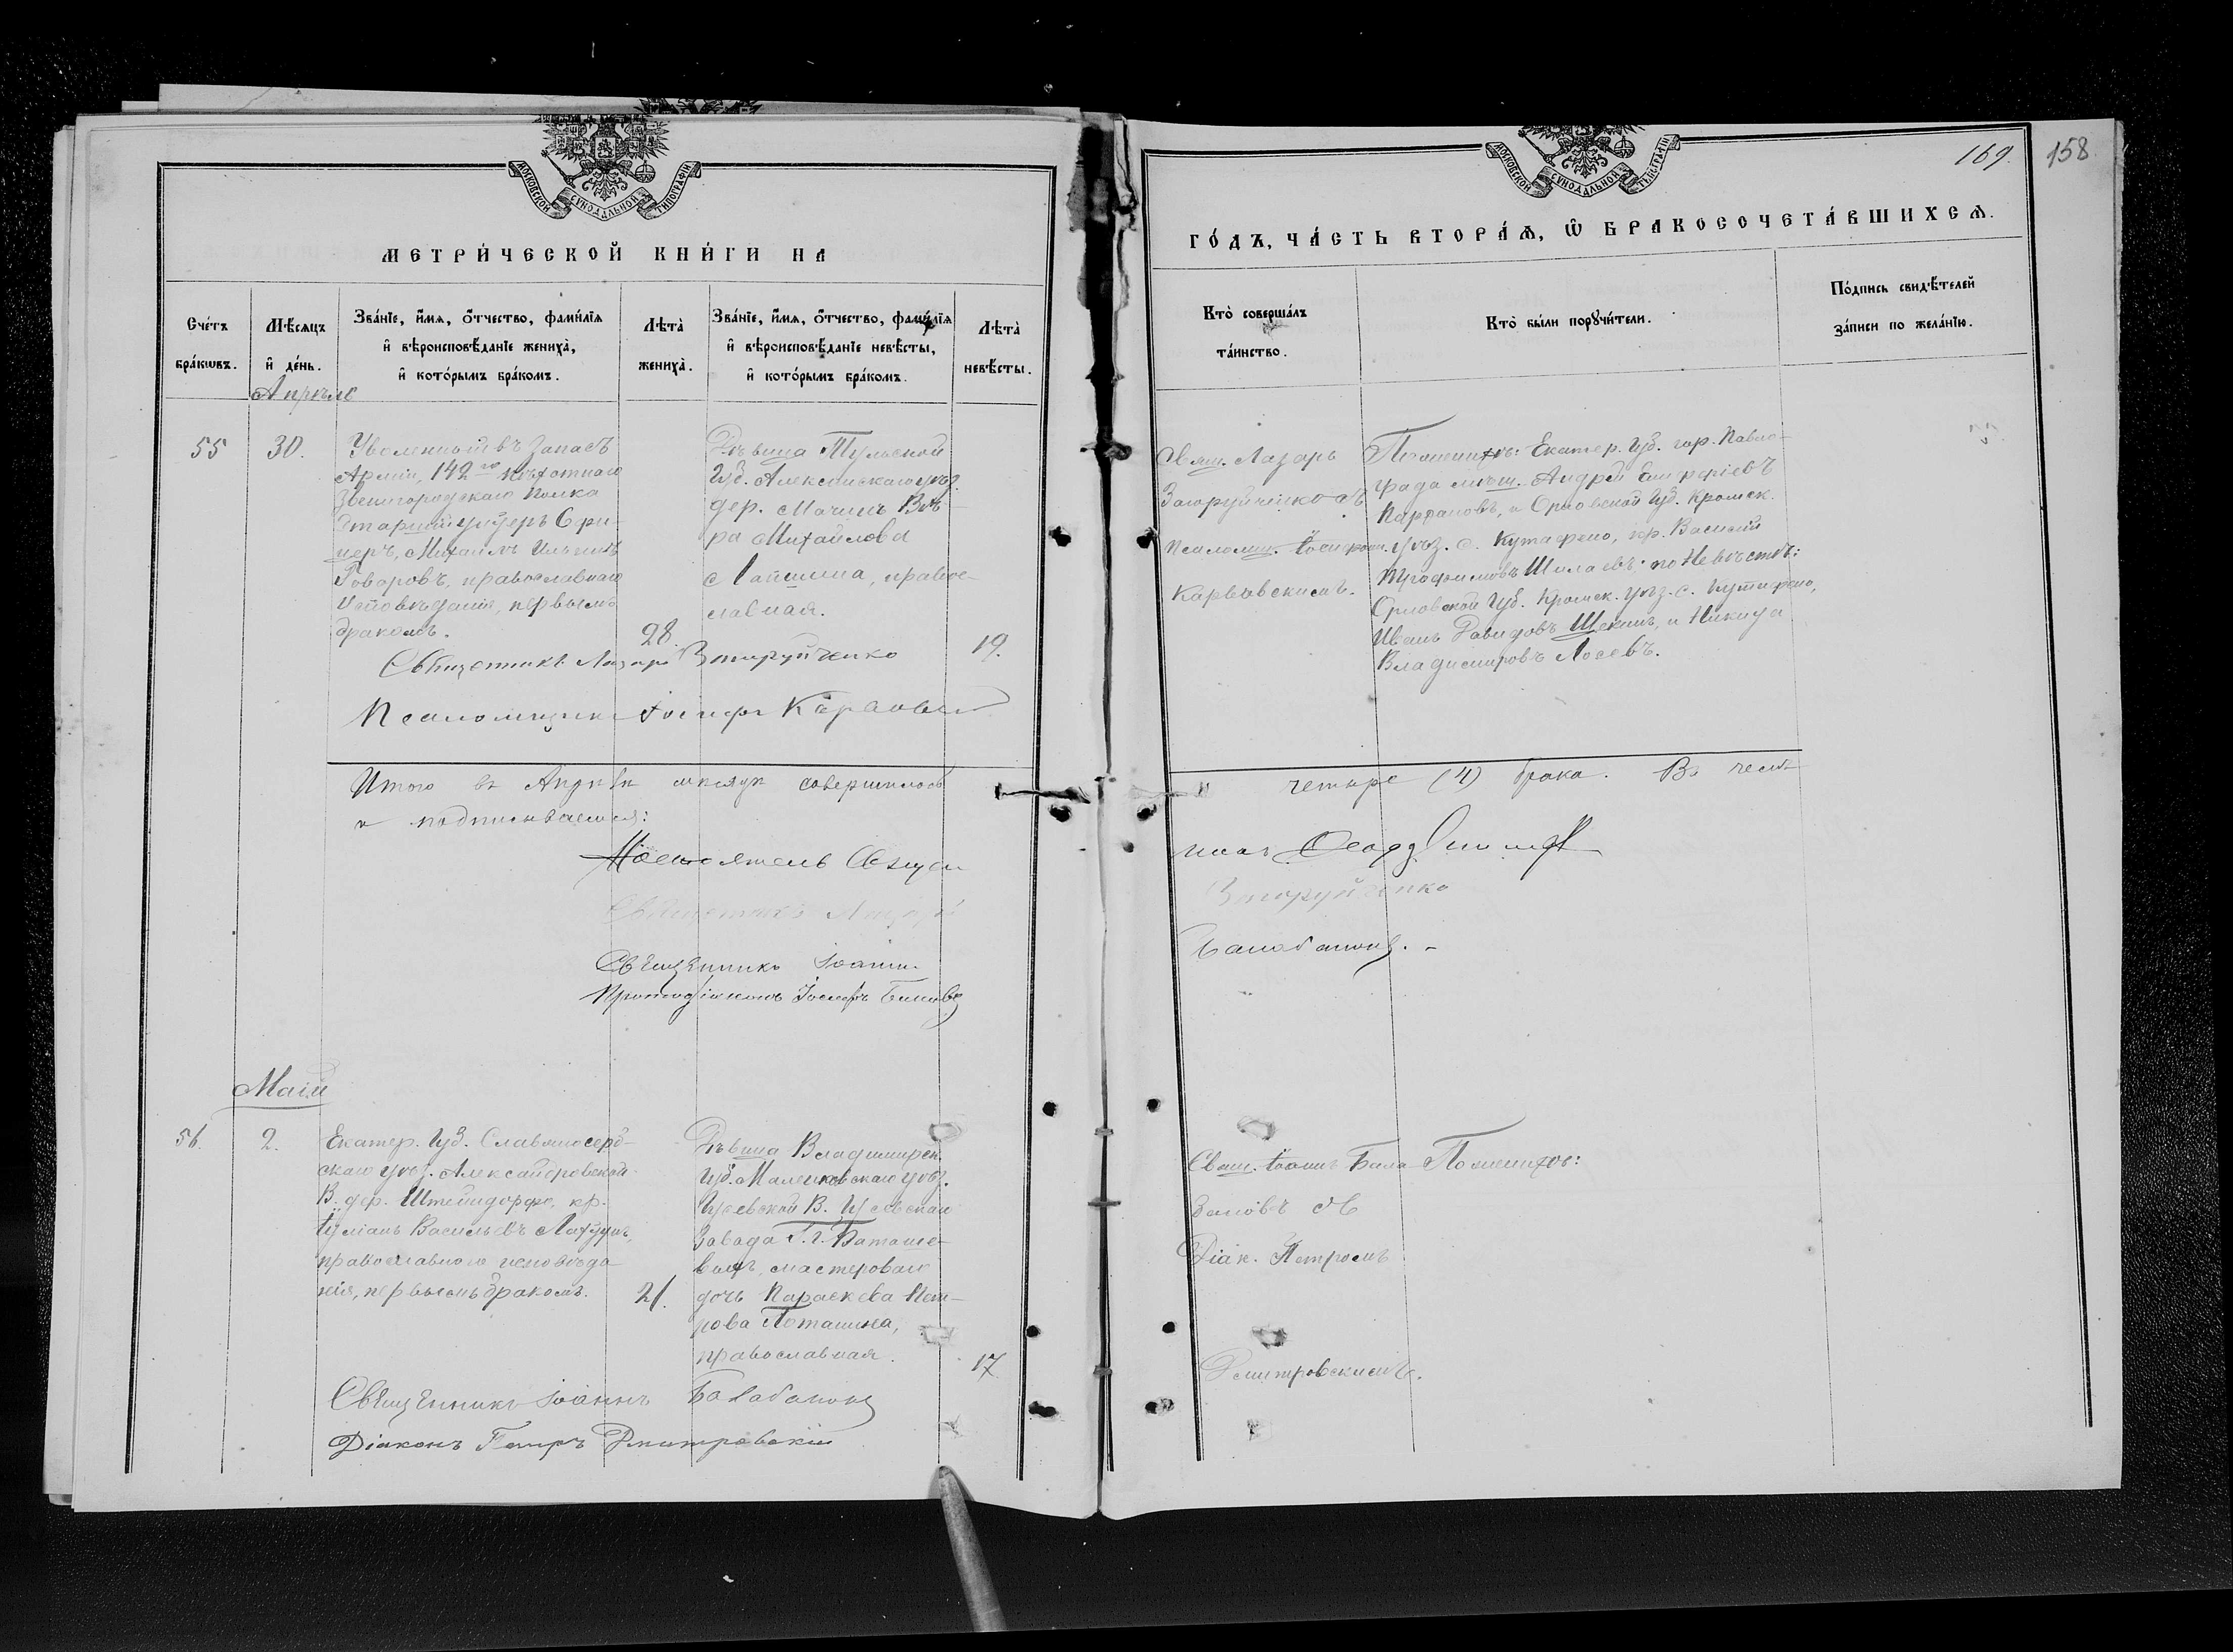 МОСКОВСКОЙ СѴНОДАЛЬНОЙ ТИПОГРАФІИ
МЕТРИ́ЧЕСКОЙ КНИ́ГИ НА
Сче́тъ бра́кѡвъ.
Мѣ́сяцъ и҆ де́нь.
Зва́нїе, и҆́мя, ѻ҆́тчество, фами́лїя
и҆ вѣроисповѣ́данїе жениха̀,
и҆ кото́рымъ бра́комъ.
Лѣта̀ жениха̀.
Зва́нїе, и҆́мя, ѻ҆́тчество, фами́лїя
и҆ вѣроисповѣ́данїе невѣ́сты,
и҆ кото́рымъ бра́комъ.
Лѣта̀ невѣ́сты.
Апрѣль
55
30.
Уволенный въ запасъ
Арміи, 142го пѣхотнаго
Звенигородскаго полка
Старшій унтеръ Офи-
церъ, Михаилъ Ильинъ
Говоровъ, православнаго
исповѣданія, первымъ
бракомъ.
28.
Дѣвица Тульской
Губ. Алексинскаго уѣз.
дер. Вѣ-
ра Михайлова
Лапшина, правос-
лавная.
19.
Священникъ Лазарь Загоруйченко
Псаломщикъ Іосифъ
Итого въ Апрѣлѣ мѣсяцѣ совершилось
и подписываемся:
Настоятель Священ
Священникъ Лазарь
Священникъ Іоаннъ
Протодіаконъ Іосифъ
Маій
56.
2.
Екатер. Губ. Славяносерб-
скаго уѣз. Александровской
В. дер. Штейндорфо, кр.
Васильевъ
православнаго исповѣда
нія, первымъ бракомъ.
21.
Дѣвица Владимирск.
Губ. Меленковскаго уѣз.
Гусевской В. Гусевскаго
Завода Г.г. Баташе-
выхъ, мастероваго
дочь Параскева Пет-
рова Поташина,
православная.
17
Священникъ Іоаннъ Балабановъ
Діаконъ Петръ Дмитровскій
169.
158
МОСКОВСКОЙ СѴНОДАЛЬНОЙ ТИПОГРАФІИ
ГО́ДЪ, ЧА́СТЬ ВТОРА́Я, Ѡ҆ БРАКОСОЧЕТА́ВШИХСЯ.
Кто̀ соверша́лъ
та́инство.
Кто̀ бы́ли порꙋчи́тели.
По́дпись свидѣ́телей
за́писи по жела́нїю.
Свящ. Лазарь
Загоруйченко съ
псаломщ. Іосифом.
Поженихѣ: Екатер. Губ. гор. Павло-
града мѣщ. Андрей
и Орловской Губ. Кромск.
уѣз. с. Кутафино, кр. Василій
Трофимовъ Шилаевъ; по Невѣстѣ:
Орловской Губ. Кромск. уѣз. с. Кутафино,
Иванъ Давидовъ и Никита
Владимировъ Лосевъ.
четыре (4) брака. Въ чемъ
Загоруйченко
Балабановъ.
Свящ. Іоаннъ Бала
бановъ съ
Діак. Петромъ
Дмитровскимъ.
Поженихѣ: